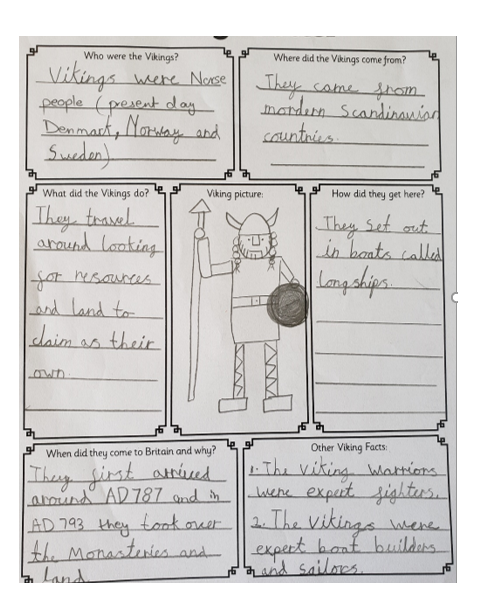 Who were the Vikings?
Vikings were Norse
people (present day
Denmark, Norway and
Sweden)
Where did the Vikings come from?
They came from
mordern Scandinavian
countries.
What did the Vikings do?
They travel
around looking
for resources
and land to
claim as their
own.
Viking picture:
How did they get here?
They set out
in boats called
longships.
When did they come to Britain and why?
They first arrived
around AD 787 and in
AD 793 they took over
the Monasteries and
land
Other Viking Facts:
1. The Viking Warriors
were expert fighters.
2. The Vikings were
expert boat builders
and sailors.